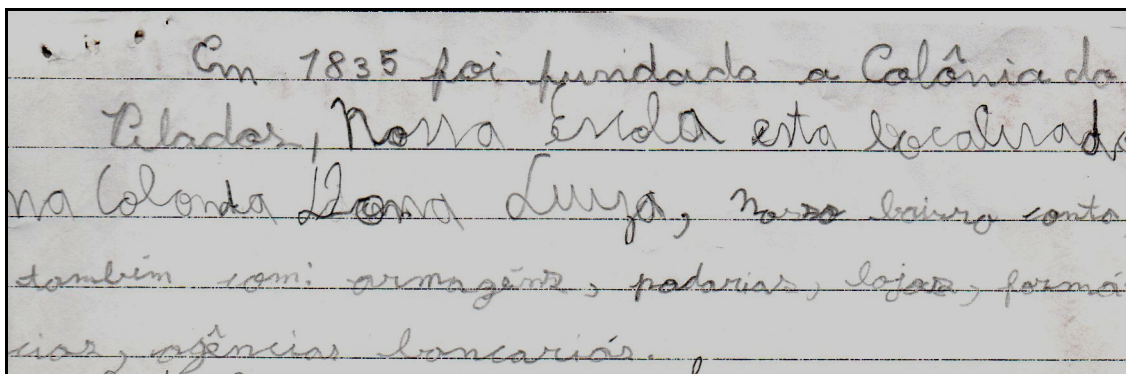 Em 1835 foi fundada a Colônia do
Pelados, Nossa Escola esta localizada
na Colonda Dona Luiza, Nosso bairro conta,
também com: armagéns, padarias, lojas, farmá
cias, agências bancariás.